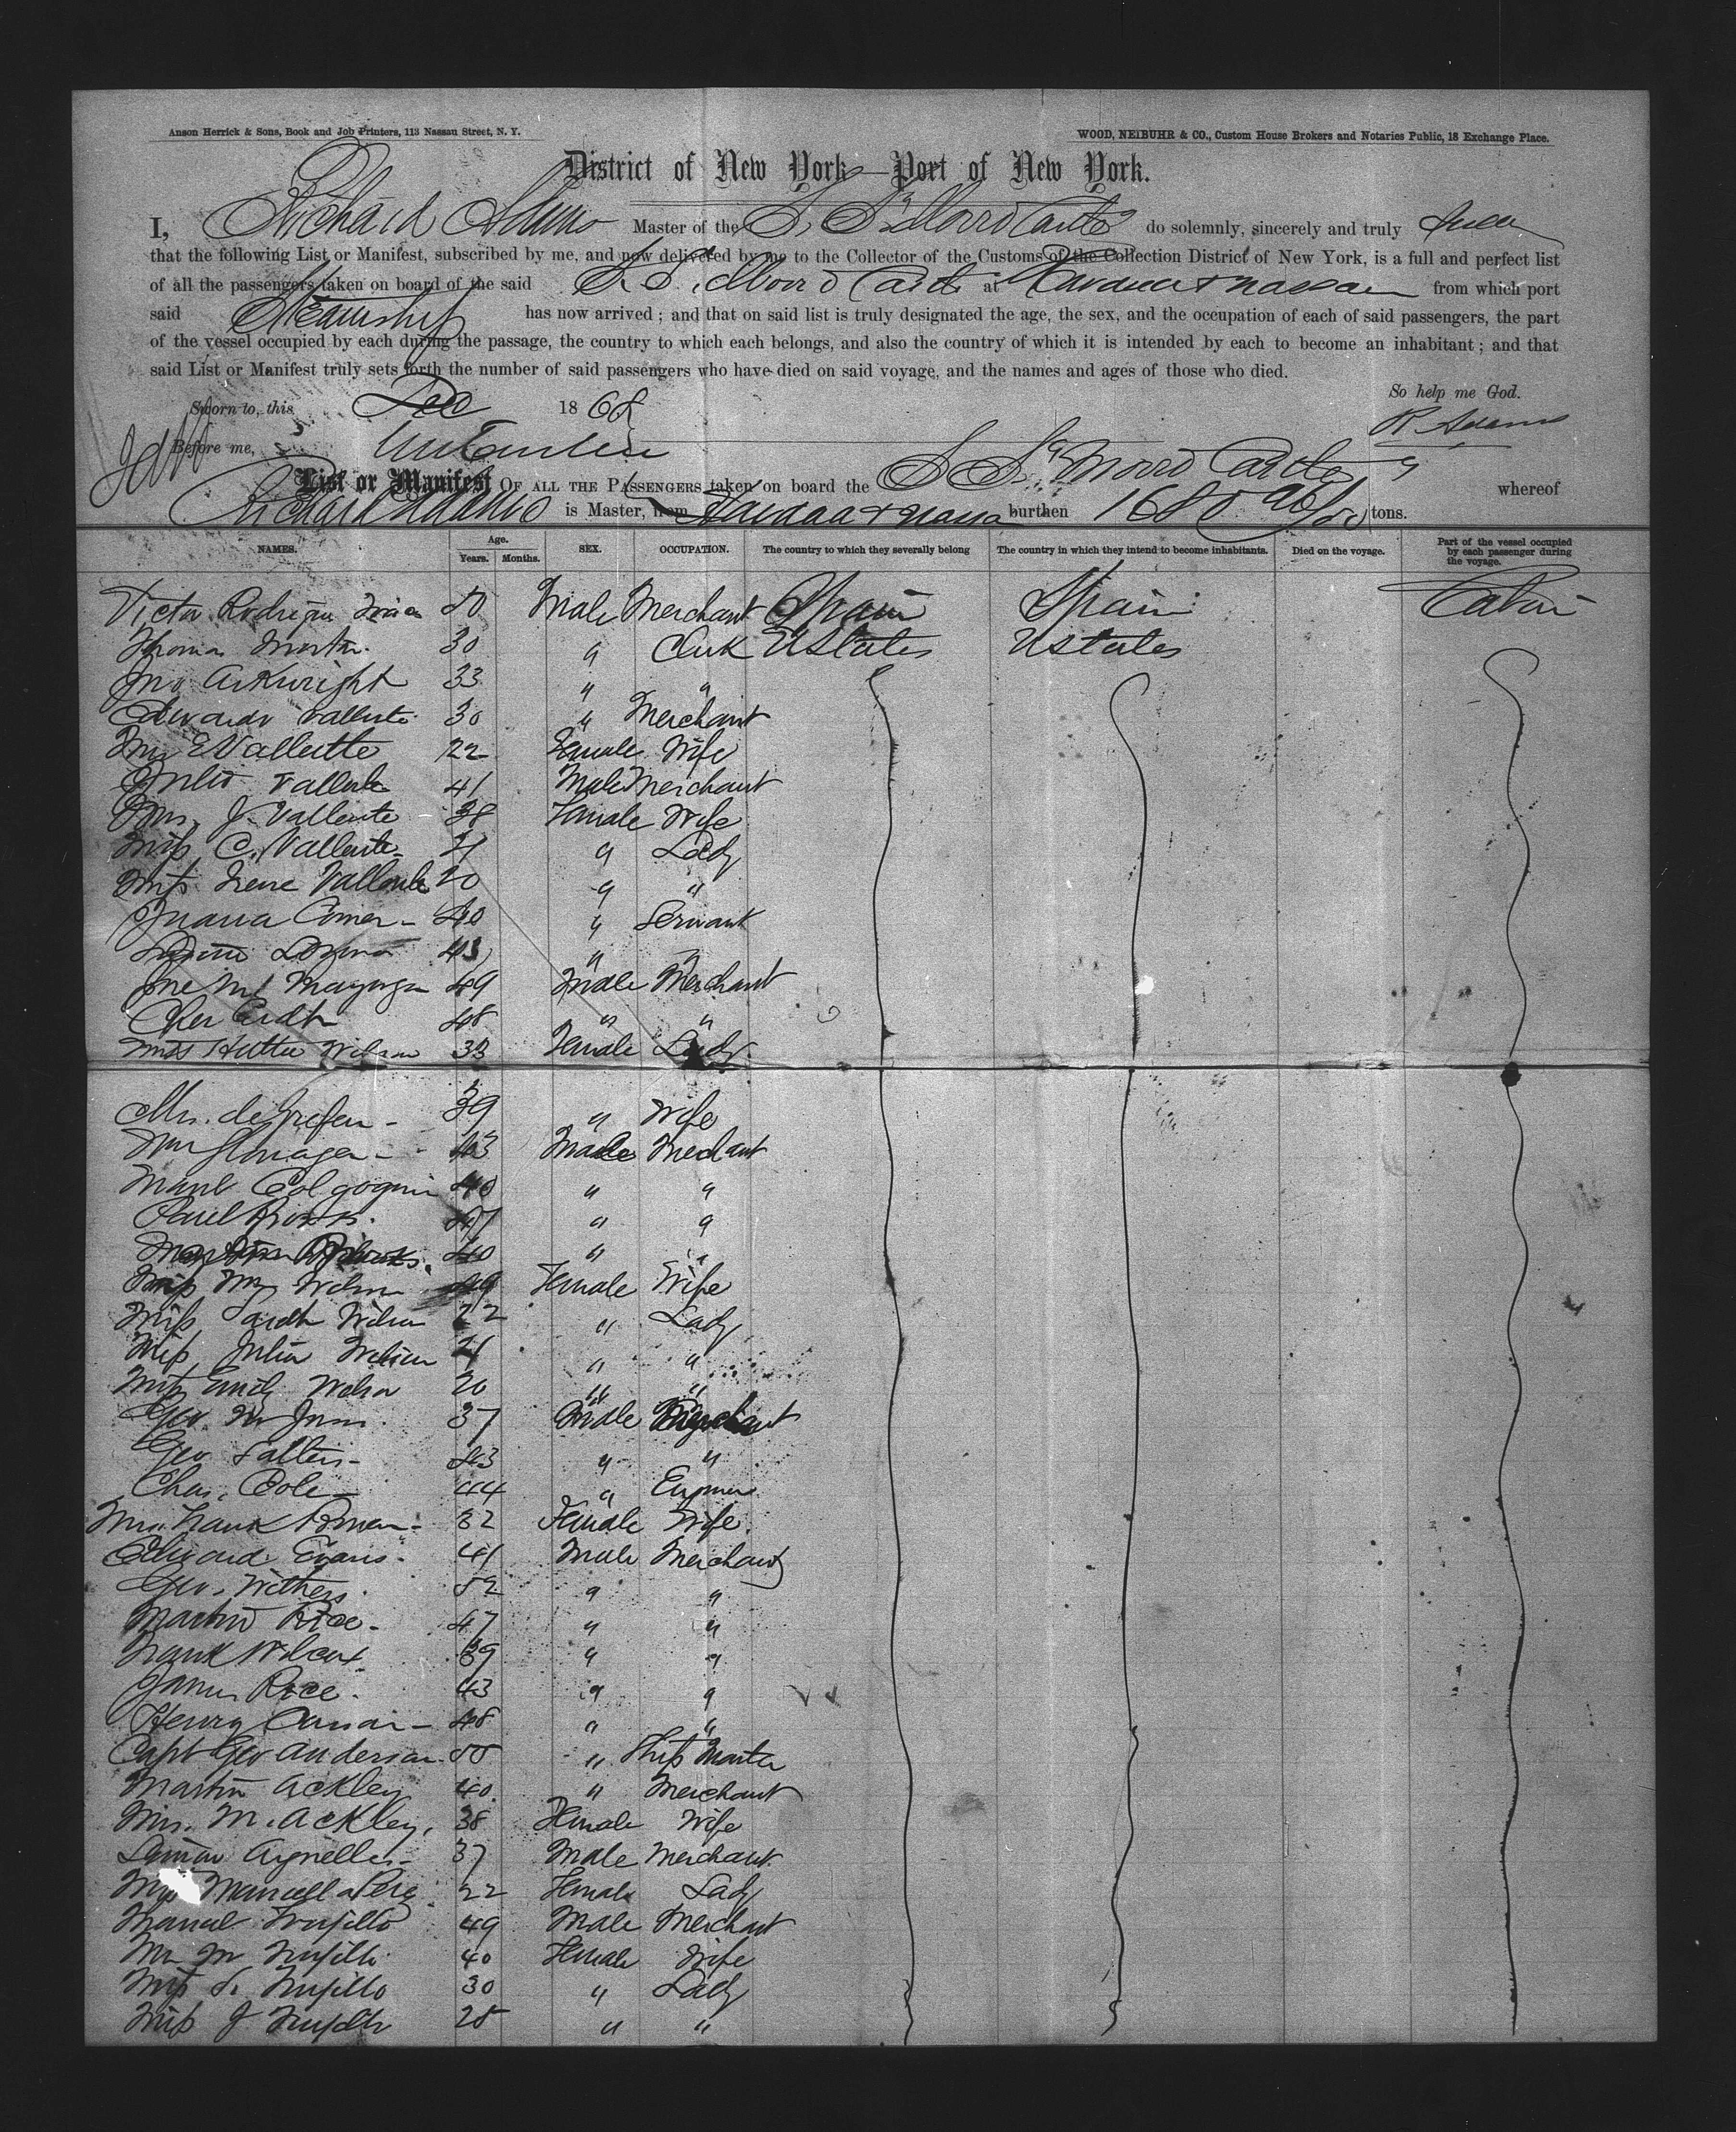 Anson Herrick & Sons, Book and Job Printers, 113 Nassau Street, N. Y.
WOOD, NEIBUHR & CO., Custom House Brokers and Notaries Public, 18 Exchange Place.
District of New York—Port of New York.
I, Richard Adams Master of the S. S. Morro Castle do solemnly, sincerely and truly swear
that the following List or Manifest, subscribed by me, and now delivered by me to the Collector of the Customs of the Collection District of New York, is a full and perfect list
of all the passengers taken on board of the said S. S. Morro Castle at Havana & Nassau from which port
said Steamship has now arrived ; and that on said list is truly designated the age, the sex, and the occupation of each of said passengers, the part
of the vessel occupied by each during the passage, the country to which each belongs, and also the country of which it is intended by each to become an inhabitant ; and that
said List or Manifest truly sets forth the number of said passengers who have died on said voyage, and the names and ages of those who died.
So help me God.
Sworn to, this Dec 1868
R. Adams
Before me,
List or Manifest OF ALL THE PASSENGERS taken on board the S. S. Morro Castle whereof
Richard Adams is Master, from Havana & Nassa burthen 1680 96/100 tons.
NAMES. Age. Years. Months. SEX. OCCUPATION. The country to which they severally belong The country in which they intend to become inhabitants. Died on the voyage. Part of the vessel occupied by each passenger during the voyage.
Victor Rodrigu 50 Male Merchant Spain Spain Cabin
Thomas 30 " Clerk UStates UStates
Jno Arkwright 33 " "
Edwardo Valliente 30 " Merchant
Mrs E Valliente 22 Female Wife
Julio Valliente 41 Male Merchant
Mrs. J. Valliente 38 Female Wife
Miss C. Valliente 21 " Lady
Miss Irene Valliente 20 " "
Juana 40 " Servant
43 " "
Jose M Mayorga 49 Male Merchant
48 " "
Miss Hattie Wilson 33 Female Lady
Mrs. de 39 " Wife
43 Male Merchant
Manl 40 " "
Paul 47 " "
40 " "
Miss M Wilson 49 Female Wife
Miss Sarah Wilson 22 " Lady
Miss Julia Wilson 21 " "
Miss Emily Wilson 20 " "
Geo. 37 Male Merchant
Geo Salters 43 " "
Chas. Cole 44 "
Mrs. Frank 32 Female Wife.
Edward Evans. 41 Male Merchant
Geo. Withers 52 " "
Martin Rice. 47 " "
Frank Wilcox 39 " "
James Rice. 43 " "
Henry 48 " "
Capt Geo Anderson 55 " Ship Master
Martin Ackley 40 " Merchant
Mrs. M. Ackley. 38 Female Wife
37 Male Merchant
Marcella 22 Female Lady
Manuel Trujillo 49 Male Merchant
Mrs M Trujillo 40 Female Wife
Miss S. Trujillo 30 " Lady
Miss J Trujillo 25 " "